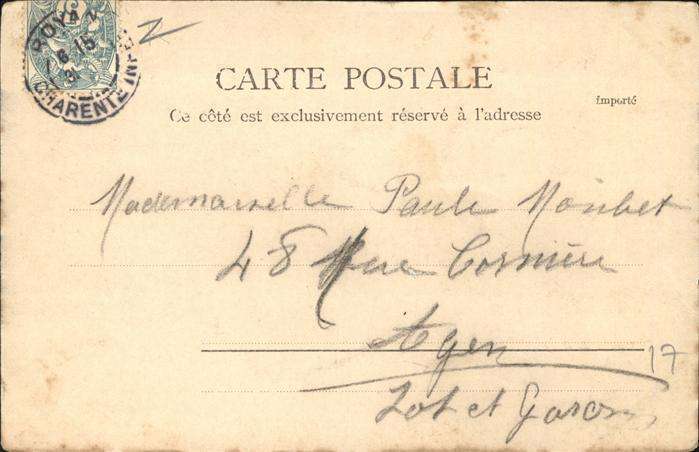 ROYAN
6 15
CHARENTE INF
CARTE POSTALE
Ce côté est exclusivement réservé à l'adresse
importé
Mademoiselle Paule
48 Rue Cornière
Agen
17
Lot et Garonne